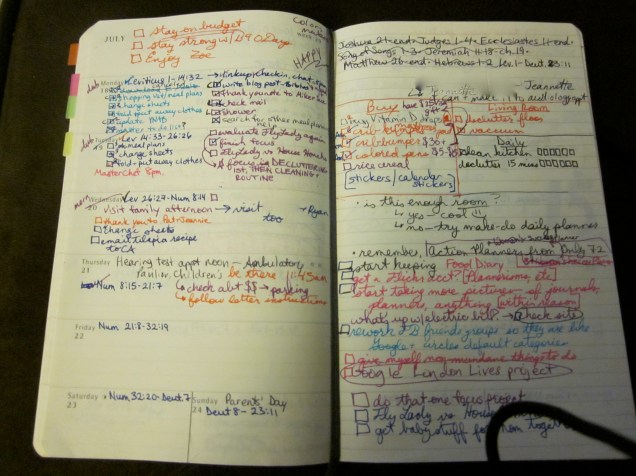 JULY
stay on budget
stay strong
Enjoy Zoe
HAPPY
Monday
Leviticus 1-14:32
linkup, checkin, chat
write blog post
change sheets
fold + put away clothes
thank you note to
check mail
update
shower
another to do list?
search for other meal plans
Lev 14:33-26:26
meal plans
change sheets
fold + put away clothes
MasterChef 8pm
evaluate FlyLady again
finish focus
FlyLady vs House
focus is DECLUTTERING
1st, THEN CLEANING +
ROUTINE
Wednesday
20
Lev 26:27-Num 8:14
visit family afternoon → visit
too
Ryan
thank you to Pat + Jeannie
change sheets
email tilapia recipe
to CA
Thursday
21
Hearing test appt noon - Ambulatory
Pavilion, Children's be there 11:45am
Num 8:15-21:7
check abt $$ → parking
follow letter instructions
Friday
22
Num 21:8-32:19
Saturday
23
Num 32:20-Deut 7
Sunday
24
Parents' Day
Deut 8-23:11
Joshua 21-end, Judges 1-4, Ecclesiastes 4-end,
Song of Songs 1-3, Jeremiah 4-18, ch. 19,
Matthew 26-end, Hebrews 1-2, Lev 1-Deut 23:11
Jeannette
make it to audiology appt
Buy
have $25
Living Room
buy Vitamin D drops
declutter floor
vacuum
crib bumpers $30+
Daily
colored pens $5-10
clean kitchen
rice cereal
declutter 15 mins
stickers/calendar
stickers
• is this enough room?
yes - cool
no - try make-do daily planner
• remember, Action Planners from Only 72
start keeping Food Diary
get a Flickr acct?
start taking more pictures - of journals,
planners, anything within reason
what's up w/ electric bill? → check site
rework FB friends groups so they are like
Google+ circles default categories
give myself non-mundane things to do
Google London Lives project
do that one focus project
FlyLady vs House
get baby stuff for them together